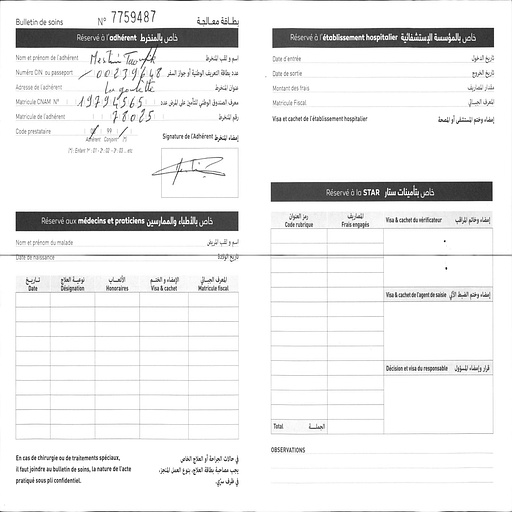 Bulletin de soins N° 7759487 بطاقة معالجة
Réservé à l'adhérent خاص بالمنخرط
Nom et prénom de l'adhérent اسم و لقب المنخرط
Numéro CIN ou passeport 00239648 عدد بطاقة التعريف الوطنية أو جواز السفر
Adresse de l'adhérent La goulette عنوان المنخرط
Matricule CNAM N° 19794565 معرف الصندوق الوطني للتأمين على المرض عدد
Matricule de l'adhérent 78025 رقم المنخرط
Code prestataire 00 99
Adhérent Conjoint (*)
Signature de l'Adhérent إمضاء المنخرط
(*) : Enfant 1er : 01 - 2 : 02 - 3 : 03 ... etc
Réservé aux médecins et praticiens خاص بالأطباء والممارسين
Nom et prénom du malade اسم و لقب المريض
Date de naissance تاريخ الولادة
تاريخ نوعية العلاج الأتعاب الإمضاء و الختم المعرف الجبائي
Date Désignation Honoraires Visa & cachet Matricule fiscal
En cas de chirurgie ou de traitements spéciaux,
il faut joindre au bulletin de soins, la nature de l'acte
pratiqué sous pli confidentiel.
في حالات الجراحة أو العلاج الخاص
يجب مصاحبة بطاقة العلاج، بنوع العمل المنجز،
في ظرف سري.
Réservé à l'établissement hospitalier خاص بالمؤسسة الإستشفائية
Date d'entrée تاريخ الدخول
Date de sortie تاريخ الخروج
Montant des frais مقدار المصاريف
Matricule Fiscal المعرف الجبائي
Visa et cachet de l'établissement hospitalier إمضاء وختم المستشفى أو المصحة
Réservé à la STAR خاص بتأمينات ستار
رمز العنوان المصاريف
Code rubrique Frais engagés
Visa & cachet du vérificateur إمضاء وخاتم المراقب
Visa & cachet de l'agent de saisie إمضاء وختم الضبط الآلي
Décision et visa du responsable قرار وإمضاء المسؤول
Total الجملة
OBSERVATIONS